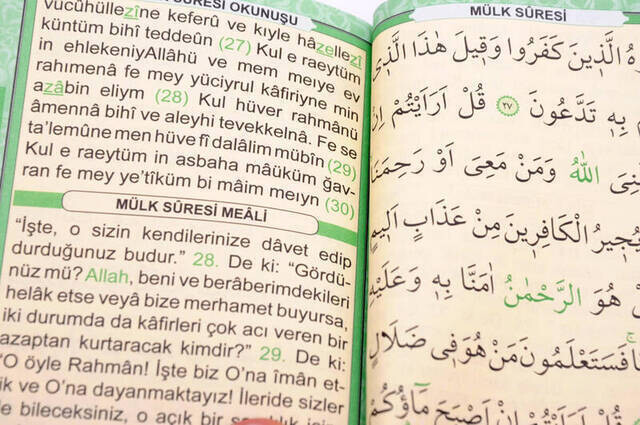 MÜLK SÛRESİ OKUNUŞU
vücûhüllezîne keferû ve kıyle hâzellezî
küntüm bihî teddeûn (27) Kul e raeytüm
in ehlekeniyAllâhü ve mem meıye ev
rahımenâ fe mey yüciyrul kâfiriyne min
azâbin eliym (28) Kul hüver rahmânü
âmennâ bihî ve aleyhi tevekkelnâ. Fe se
ta'lemûne men hüve fî dalâlim mübîn (29)
Kul e raeytüm in asbaha mâüküm ğav-
ran fe mey ye'tîküm bi mâim meıyn (30)
MÜLK SÛRESİ MEÂLİ
"İşte, o sizin kendilerinize dâvet edip
durduğunuz budur." 28. De ki: "Gördü-
nüz mü? Allah, beni ve berâberimdekileri
helâk etse veyâ bize merhamet buyursa,
iki durumda da kâfirleri çok acı veren bir
azaptan kurtaracak kimdir?" 29. De ki:
"O öyle Rahmân! İşte biz O'na îmân et-
ik ve O'na dayanmaktayız! İleride sizler
bileceksiniz, o açık bir
MÜLK SÛRESİ
الَّذِينَ كَفَرُوا وَقِيلَ هٰذَا الَّذِى
بِهِ تَدَّعُونَ ﴿٢٧﴾ قُلْ اَرَاَيْتُمْ اِنْ
اللّٰهُ وَمَنْ مَعِىَ اَوْ رَحِمَنَا
يُجِيرُ الْكَافِرِينَ مِنْ عَذَابٍ اَلِيمٍ
هُوَ الرَّحْمٰنُ اٰمَنَّا بِهِ وَعَلَيْهِ
فَسَتَعْلَمُونَ مَنْ هُوَ فِى ضَلَالٍ
اَرَاَيْتُمْ اِنْ اَصْبَحَ مَاؤُكُمْ